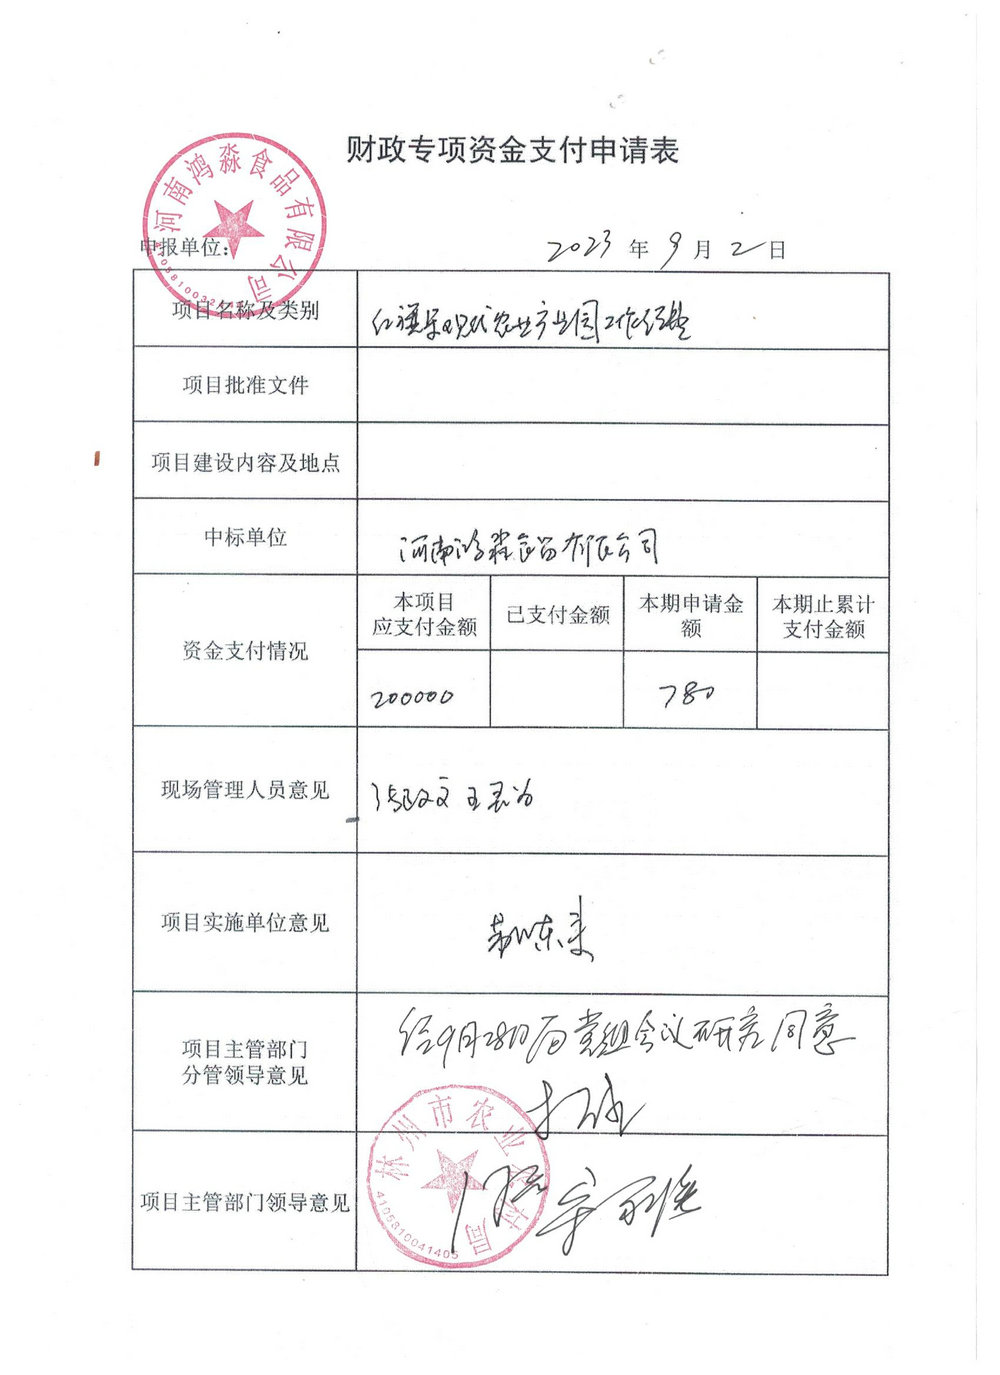 财政专项资金支付申请表
河南鸿淼食品有限公司
申报单位：
2023 年 9 月 2 日
项目名称及类别
红旗渠现代农业产业园工作经费
项目批准文件
项目建设内容及地点
中标单位
河南鸿淼食品有限公司
资金支付情况
本项目
应支付金额
已支付金额
本期申请金
额
本期止累计
支付金额
200000
780
现场管理人员意见
项目实施单位意见
项目主管部门
分管领导意见
经9月28日局党组会议研究同意
项目主管部门领导意见
同意
林州市农业农村局
4105810041405